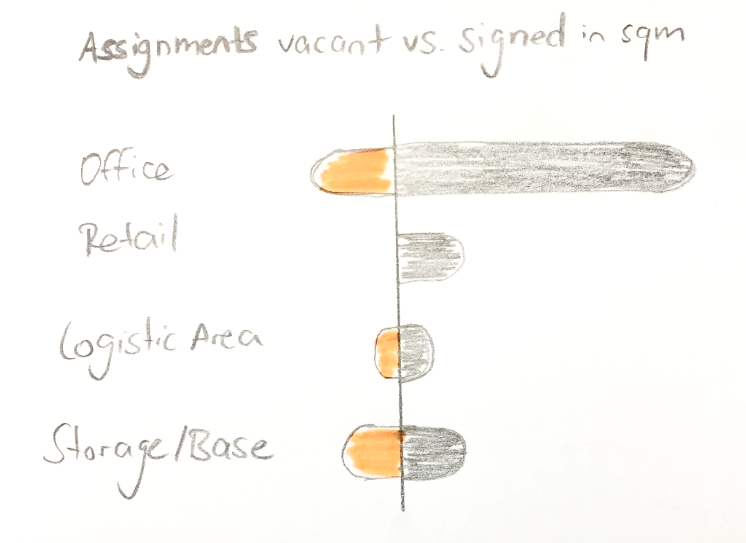 Assignments vacant vs. signed in sqm
Office
Retail
Logistic Area
Storage/Base